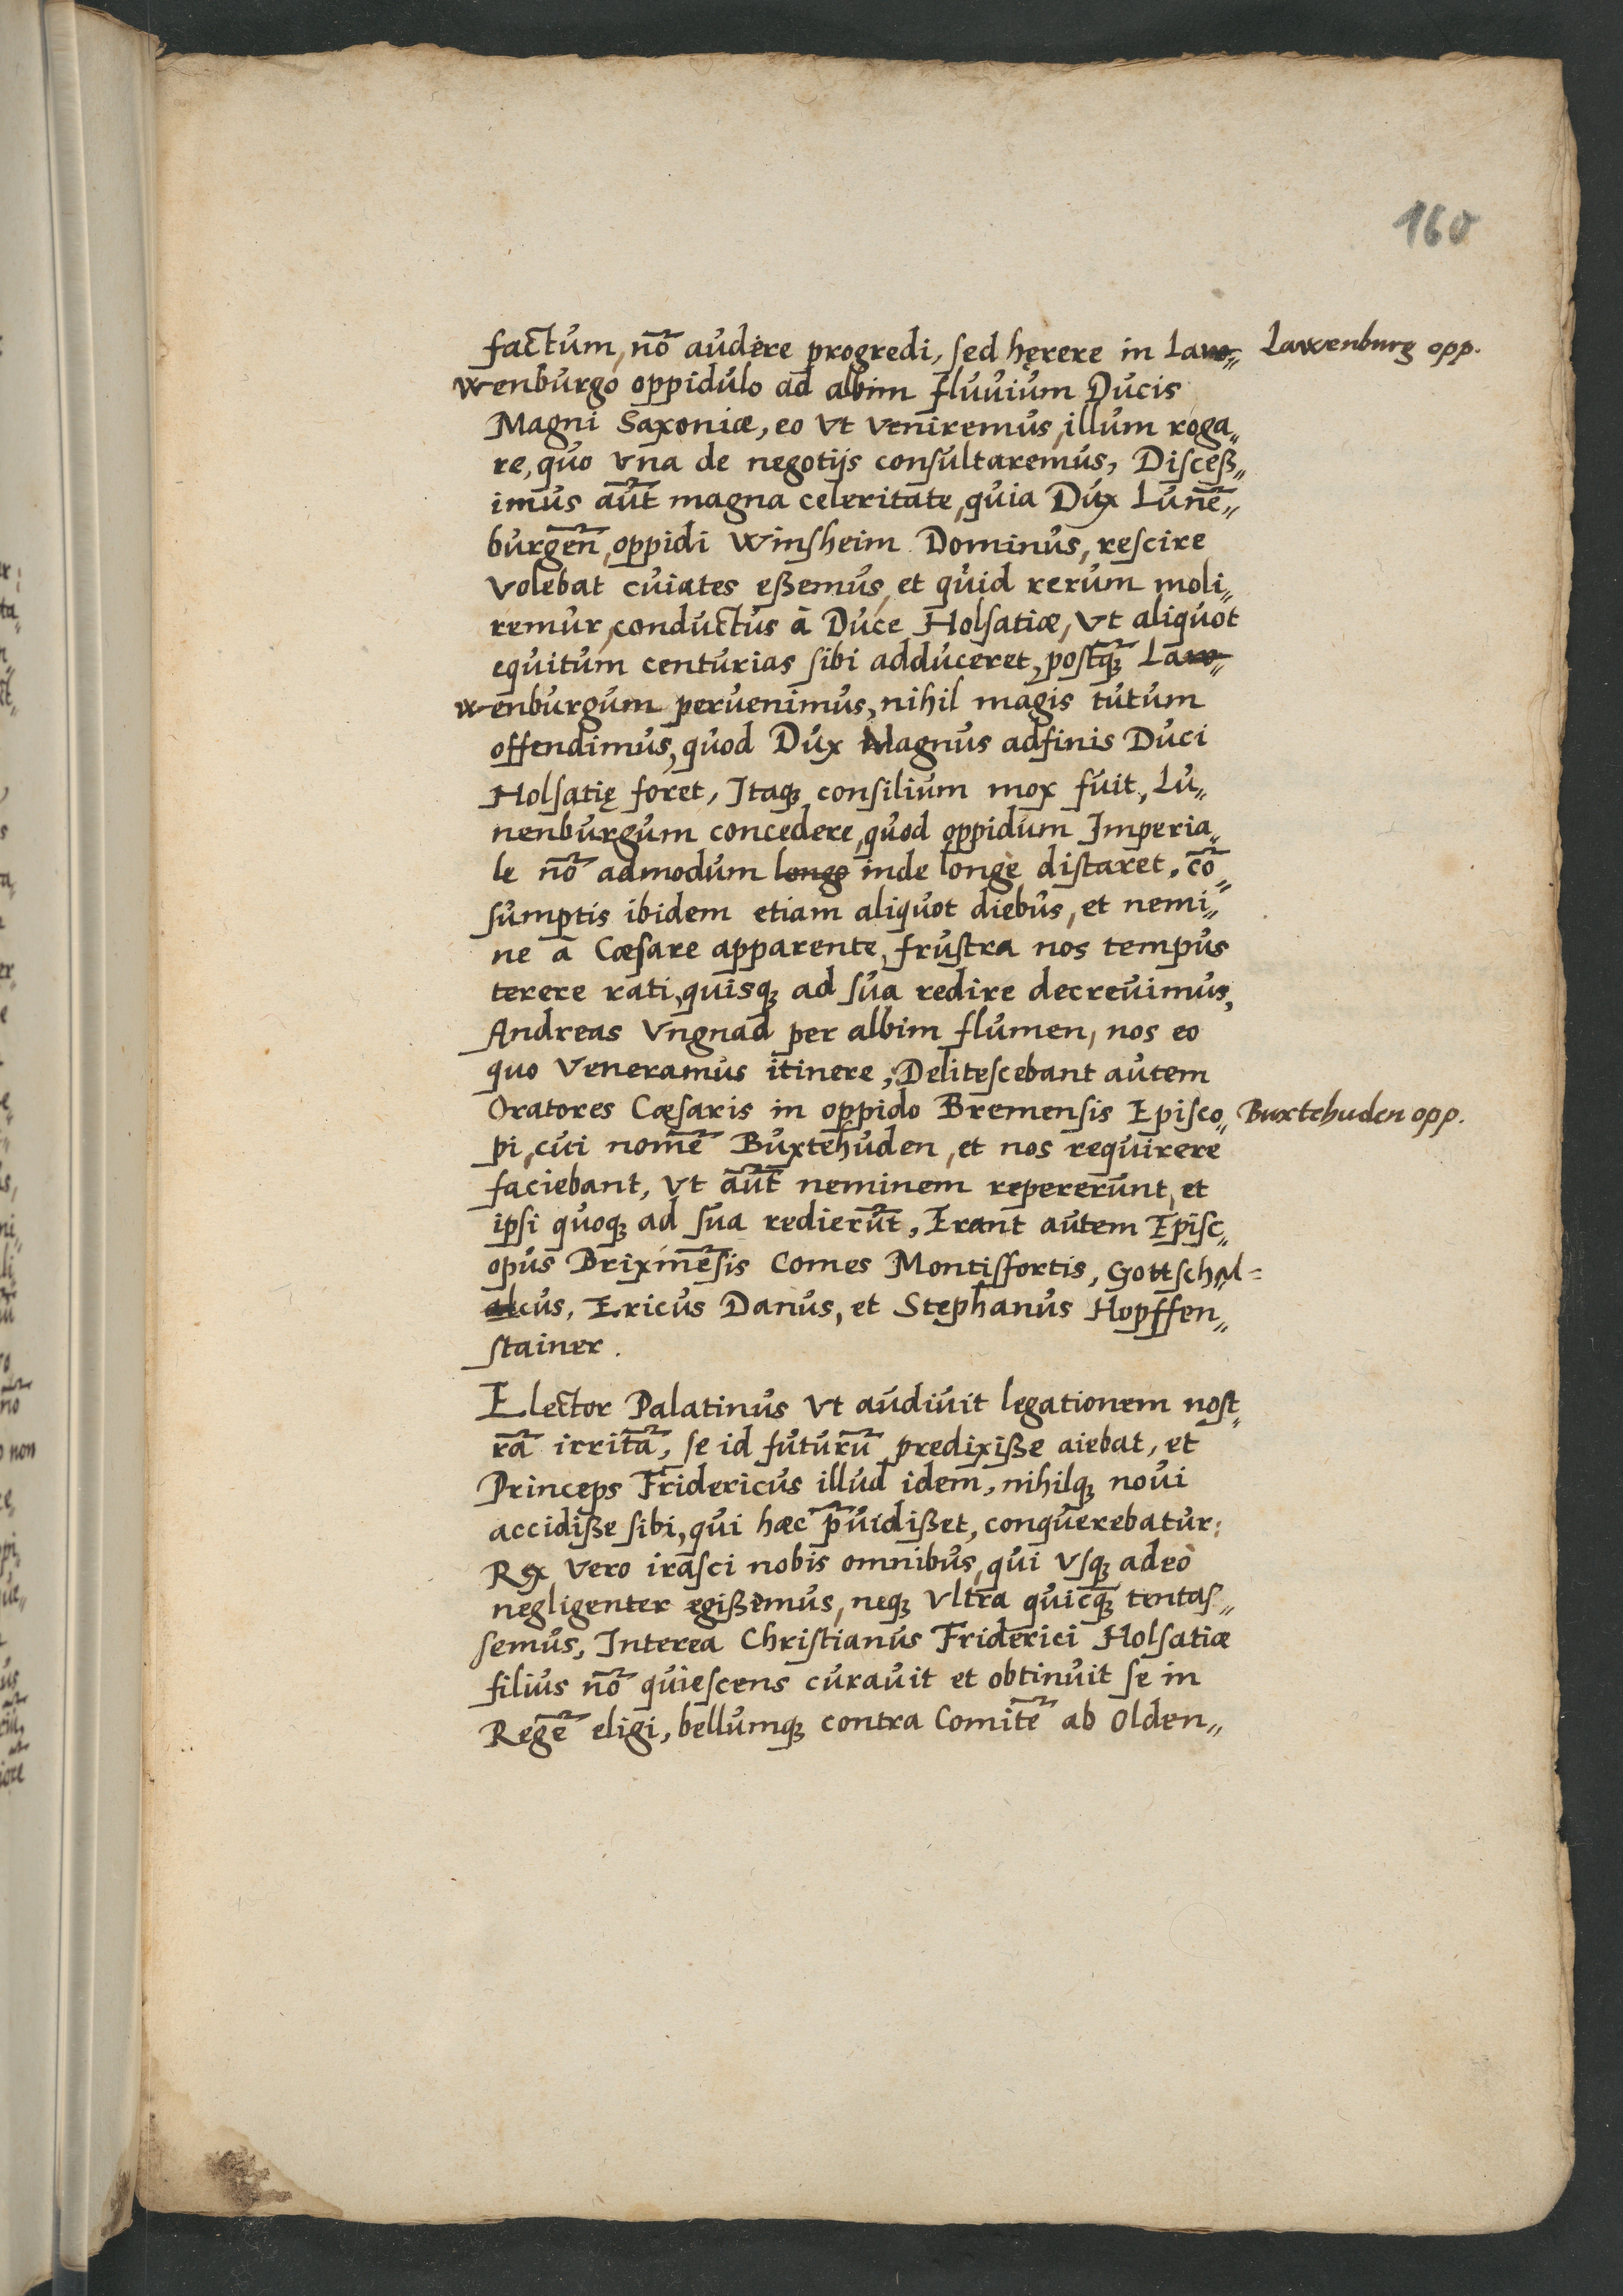 160
factum, nō audere progredi, sed hęrere in La
Lawenburg opp.
wenburgo oppidulo ad albim fluvium Ducis
Magni Saxoniæ, eo Vt Veniremus, illum roga„
re, quo Vna de negotijs consultaremus, Disceß„
imus aūt magna celeritate, quia Dux Lunē„
burgeñ, oppidi Winsheim Dominus, rescire
Volebat cuiates eßemus, et quid rerum moli„
remur, conductus à Duce Holsatiæ, Vt aliquot
equitum centurias sibi adduceret, postq̄ꝫ La
wenburgum peruenimus, nihil magis tutum
offendimus, quod Dux Magnus adfinis Duci
Holsatię foret, Itaqꝫ consilium mox fuit, Lu„
nenburgum concedere, quod oppidum Imperia„
le nō admodum longo inde longe distaret, cō„
sumptis ibidem etiam aliquot diebus, et nemi„
ne a Cæsare apparente, frustra nos tempus
terere rati, quisqꝫ ad sua redire decrevimus,
Andreas Vngnad per albim flumen, nos eo
quo Veneramus itinere, Delitescebant autem
Oratores Cæsaris in oppido Bremensis Episco„
Buxtehuden opp.
pi, cui nomē Buxtehuden, et nos requirere
faciebant, Vt aūt neminem repererunt, et
ipsi quoqꝫ ad sua redierūt, Erant autem Episc„
opus Brixinēsis Comes Montisfortis, Gottschal=
cus, Ericus Danus, et Stephanus Hopffen„
stainer.
Elector Palatinus Vt audivit legationem nost„
rā irritā, se id futurū predixiße aiebat, et
Princeps Fridericus illud idem, nihilqꝫ novi
accidiße sibi, qui hæc p̄uidißet, conquerebatur:
Rex Vero irasci nobis omnibus, qui Vsqꝫ adeo
negligenter egißemus, neqꝫ Vltra quicq̄ꝫ tentas„
semus, Interea Christianus Friderici Holsatiæ
filius nō quiescens curavit et obtinuit se in
Regē eligi, bellumqꝫ contra Comitē ab Olden„